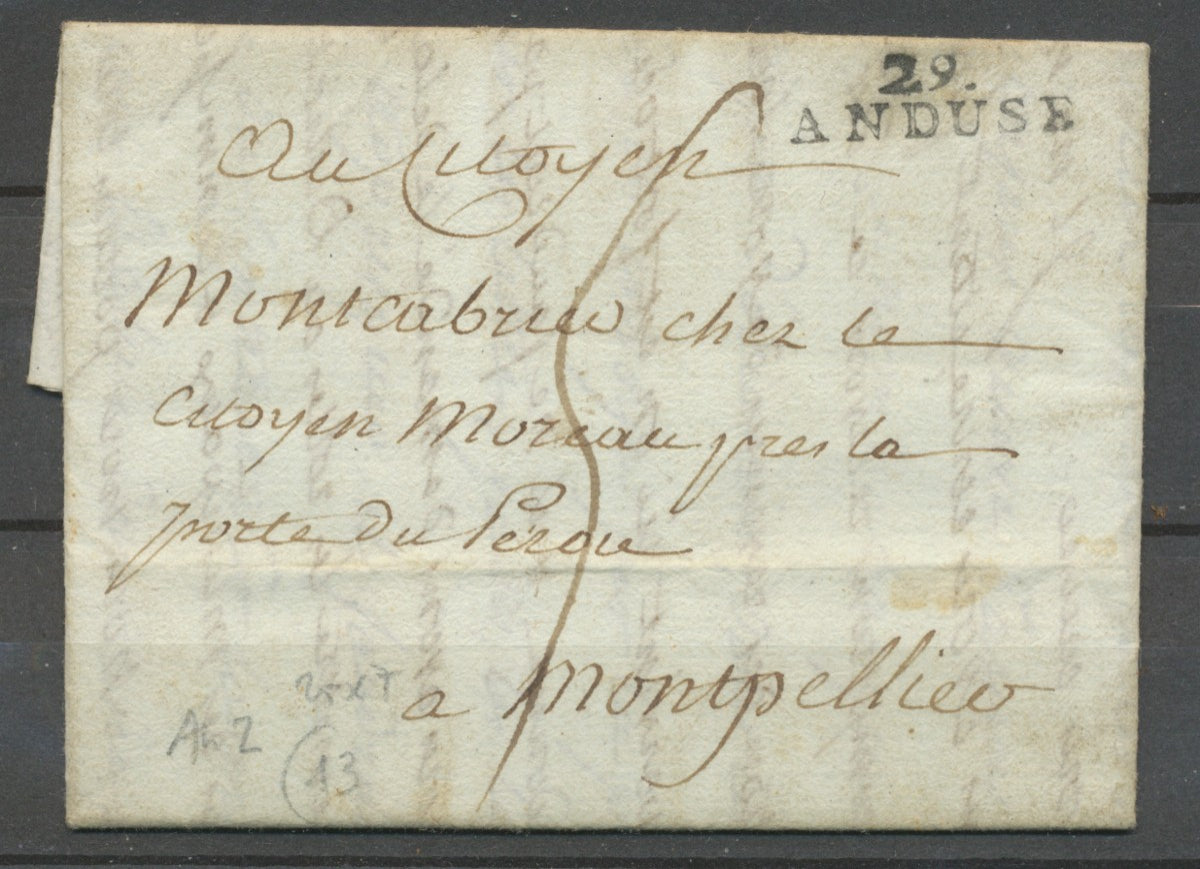 29.
ANDUSE
Au Citoyen
Montcabrier chez le
citoyen Moreau pres la
porte du Pérou
a Montpellier
An 2
13